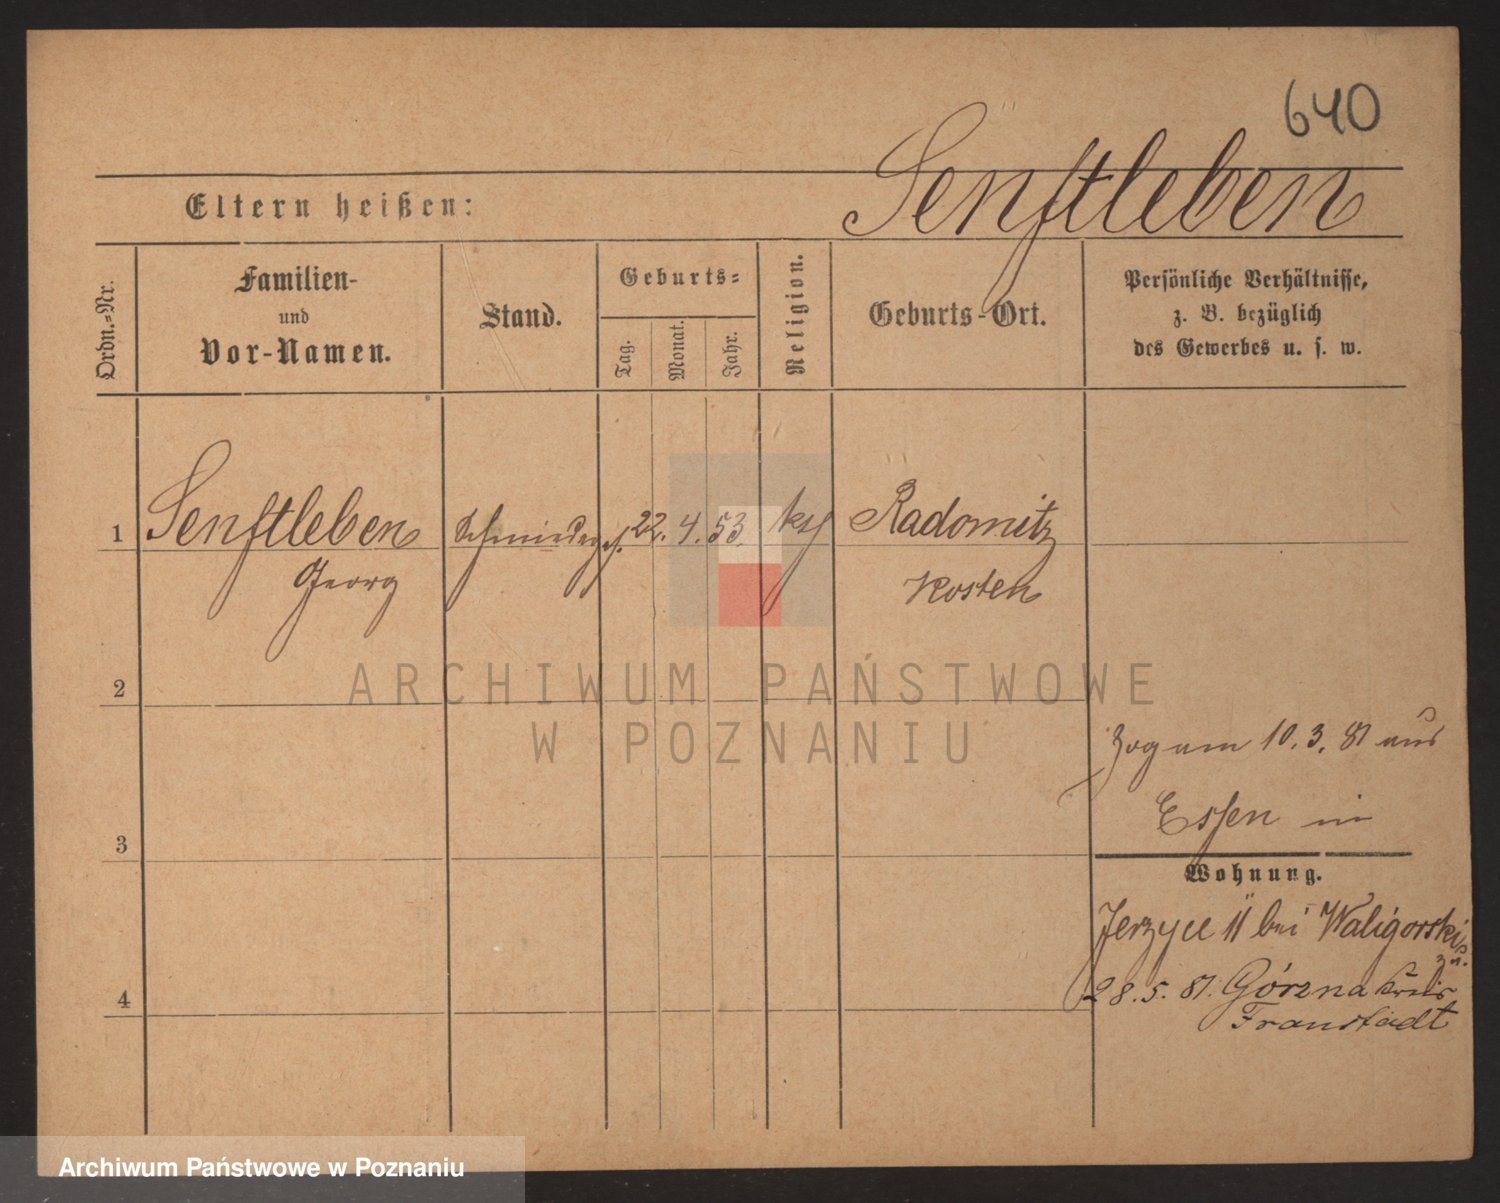 640
Senftleben
Eltern heißen:
Ordn.-Nr.
Familien-
und
Vor-Namen.
Stand.
Geburts-
Tag.
Monat.
Jahr.
Religion.
Geburts-Ort.
Persönliche Verhältnisse,
z. B. bezüglich
des Gewerbes u. s. w.
1 Senftleben Schmiedeges. 22. 4. 53. kth Radomitz
Georg Kosten
2
Zog am 10. 3. 81 aus
Essen in
3
Wohnung.
Jerzyce 11 bei Waligorski
28. 5. 81. Górzna Kreis
Fraustadt
4
ARCHIWUM PAŃSTWOWE
W POZNANIU
Archiwum Państwowe w Poznaniu